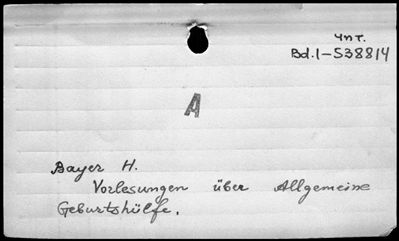 чит.
Bd.I-538814
A
Bayer H.
Vorlesungen über Allgemeine
Geburtshülfe.